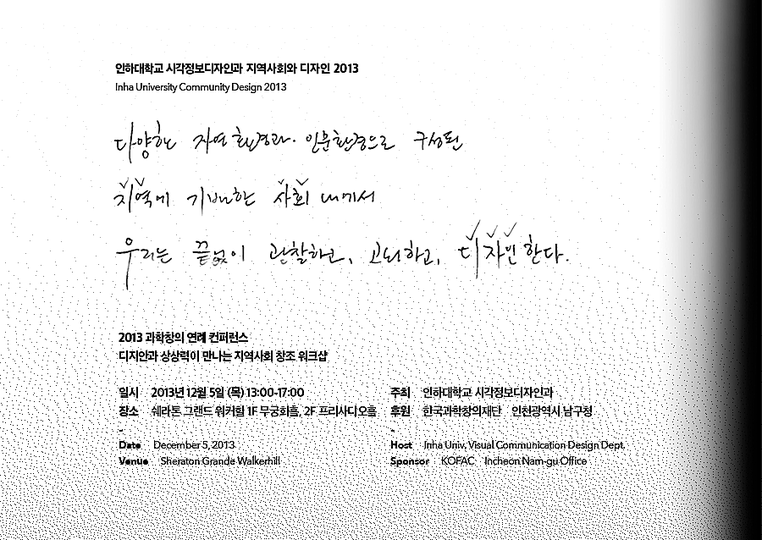 인하대학교 시각정보디자인과 지역사회와 디자인 2013
Inha University Community Design 2013
다양한 자연환경과 인문환경으로 구성된
지역에 기반한 사회 내에서
우리는 끝없이 관찰하고, 고뇌하고, 디자인한다.
2013 과학창의 연례 컨퍼런스
디지안과 상상력이 만나는 지역사회 창조 워크샵
일시 2013년 12월 5일 (목) 13:00-17:00
장소 쉐라톤 그랜드 워커힐 1F 무궁화홀, 2F 프리사디오홀
주최 인하대학교 시각정보디자인과
후원 한국과학창의재단 인천광역시 남구청
Date December 5, 2013
Venue Sheraton Grande Walkerhill
Host Inha Univ, Visual Communication Design Dept.
Sponsor KOFAC Incheon Nam-gu Office